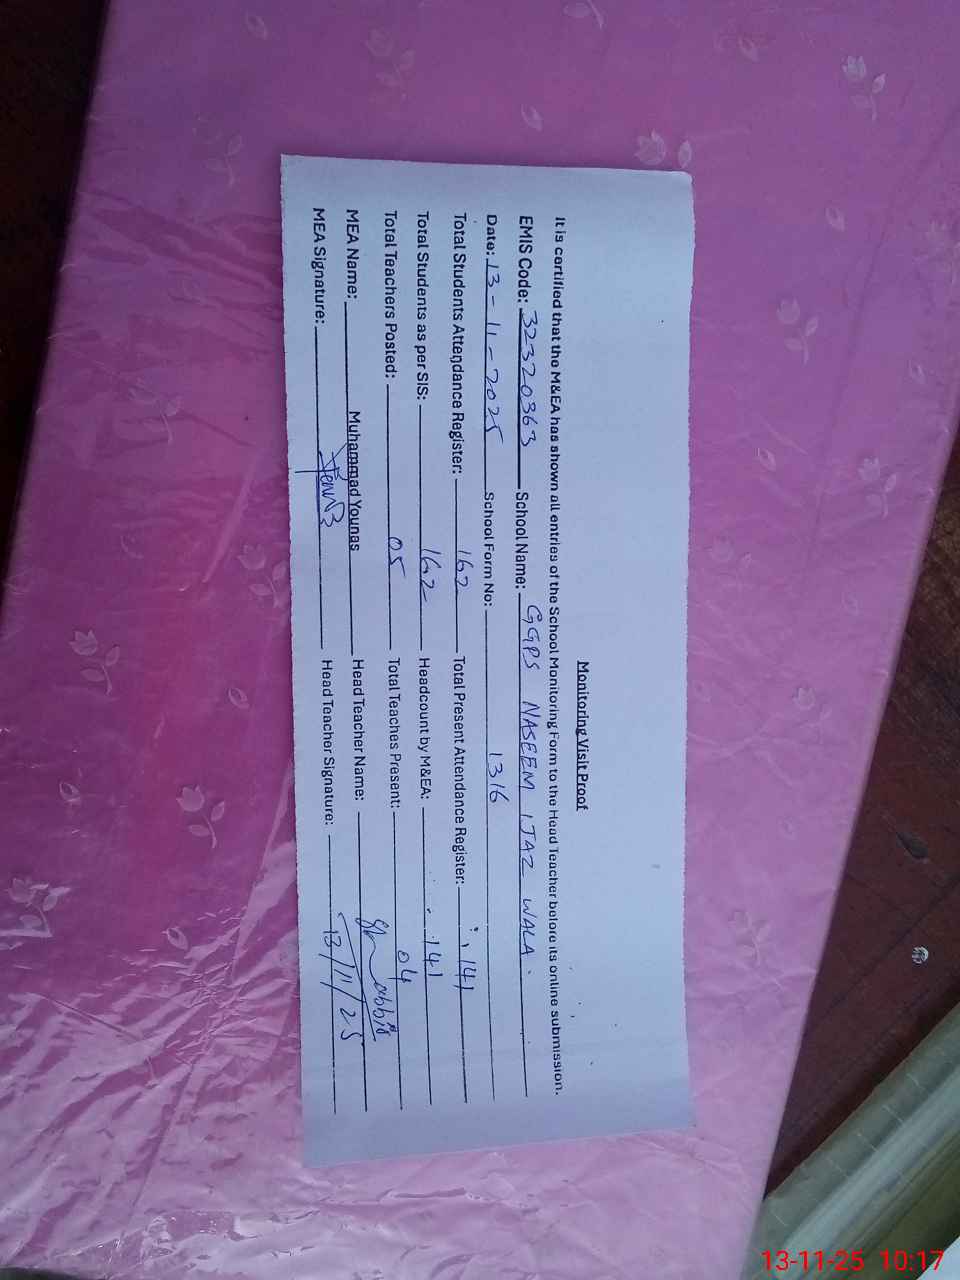 Monitoring Visit Proof
It is certified that the M&EA has shown all entries of the School Monitoring Form to the Head Teacher before its online submission.
EMIS Code: 32320363 School Name: GGPS NASEEM IJAZ WALA.
Date: 13-11-2025 School Form No: 1316
Total Students Attendance Register: 162 Total Present Attendance Register: 141
Total Students as per SIS: 162 Headcount by M&EA: 141
Total Teachers Posted: 05 Total Teaches Present: 04
MEA Name: Muhammad Younas Head Teacher Name:
MEA Signature: Head Teacher Signature: 13/11/25
13-11-25 10:17